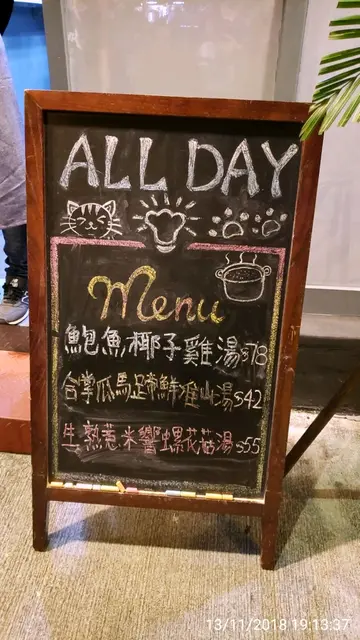 ALL DAY
Menu
鮑魚椰子雞湯$78
合掌瓜馬蹄鮮淮山湯$42
生熟薏米響螺花菇湯$55
13/11/2018 19:13:37